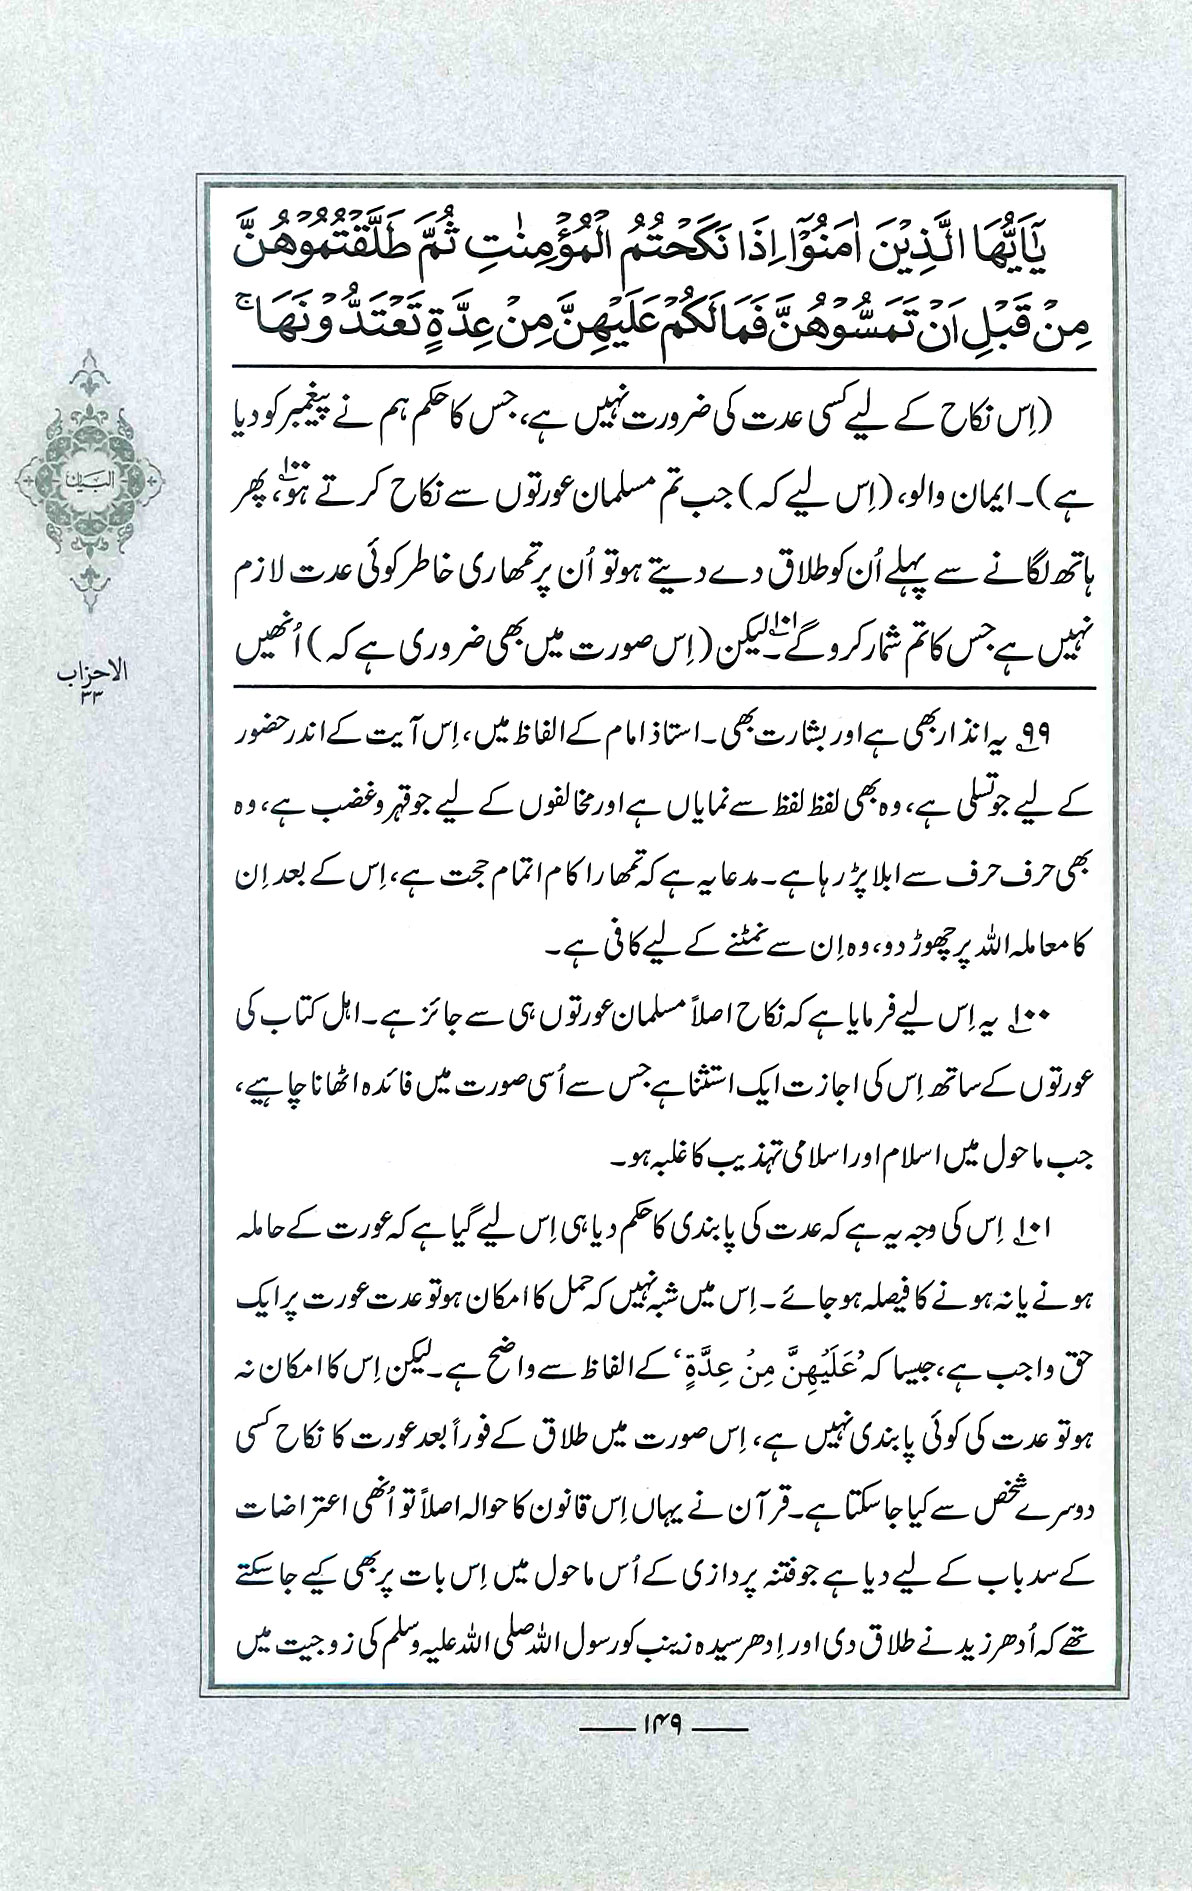 يٰۤاَيُّهَا الَّذِيْنَ اٰمَنُوْۤا اِذَا نَكَحْتُمُ الْمُؤْمِنٰتِ ثُمَّ طَلَّقْتُمُوْهُنَّ
مِنْ قَبْلِ اَنْ تَمَسُّوْهُنَّ فَمَا لَكُمْ عَلَيْهِنَّ مِنْ عِدَّةٍ تَعْتَدُّوْنَهَا ۚ
(اِس نکاح کے لیے کسی عدت کی ضرورت نہیں ہے، جس کا حکم ہم نے پیغمبر کو دیا
ہے)۔ ایمان والو، (اِس لیے کہ) جب تم مسلمان عورتوں سے نکاح کرتے ہو،۱۰۰ پھر
ہاتھ لگانے سے پہلے اُن کو طلاق دے دیتے ہو تو اُن پر تمھاری خاطر کوئی عدت لازم
نہیں ہے جس کا تم شمار کرو گے۔۱۰۱ لیکن (اِس صورت میں بھی ضروری ہے کہ) اُنھیں
۹۹؎ یہ انذار بھی ہے اور بشارت بھی۔ استاذ امام کے الفاظ میں، اِس آیت کے اندر حضور
کے لیے جو تسلی ہے، وہ بھی لفظ لفظ سے نمایاں ہے اور مخالفوں کے لیے جو قہر و غضب ہے، وہ
بھی حرف حرف سے ابلا پڑ رہا ہے۔ مدعا یہ ہے کہ تمھارا کام اتمام حجت ہے، اِس کے بعد اِن
کا معاملہ اللہ پر چھوڑ دو، وہ اِن سے نمٹنے کے لیے کافی ہے۔
۱۰۰؎ یہ اِس لیے فرمایا ہے کہ نکاح اصلاً مسلمان عورتوں ہی سے جائز ہے۔ اہل کتاب کی
عورتوں کے ساتھ اِس کی اجازت ایک استثنا ہے جس سے اُسی صورت میں فائدہ اٹھانا چاہیے،
جب ماحول میں اسلام اور اسلامی تہذیب کا غلبہ ہو۔
۱۰۱؎ اِس کی وجہ یہ ہے کہ عدت کی پابندی کا حکم دیا ہی اِس لیے گیا ہے کہ عورت کے حاملہ
ہونے یا نہ ہونے کا فیصلہ ہو جائے۔ اِس میں شبہ نہیں کہ حمل کا امکان ہو تو عدت عورت پر ایک
حق واجب ہے، جیسا کہ ’عَلَيْهِنَّ مِنْ عِدَّةٍ‘ کے الفاظ سے واضح ہے۔ لیکن اِس کا امکان نہ
ہو تو عدت کی کوئی پابندی نہیں ہے، اِس صورت میں طلاق کے فوراً بعد عورت کا نکاح کسی
دوسرے شخص سے کیا جا سکتا ہے۔ قرآن نے یہاں اِس قانون کا حوالہ اصلاً تو اُنھی اعتراضات
کے سدباب کے لیے دیا ہے جو فتنہ پردازی کے اُس ماحول میں اِس بات پر بھی کیے جا سکتے
تھے کہ اُدھر زید نے طلاق دی اور اِدھر سیدہ زینب کو رسول اللہ صلی اللہ علیہ وسلم کی زوجیت میں
البیان
الاحزاب
۳۳
۱۴۹